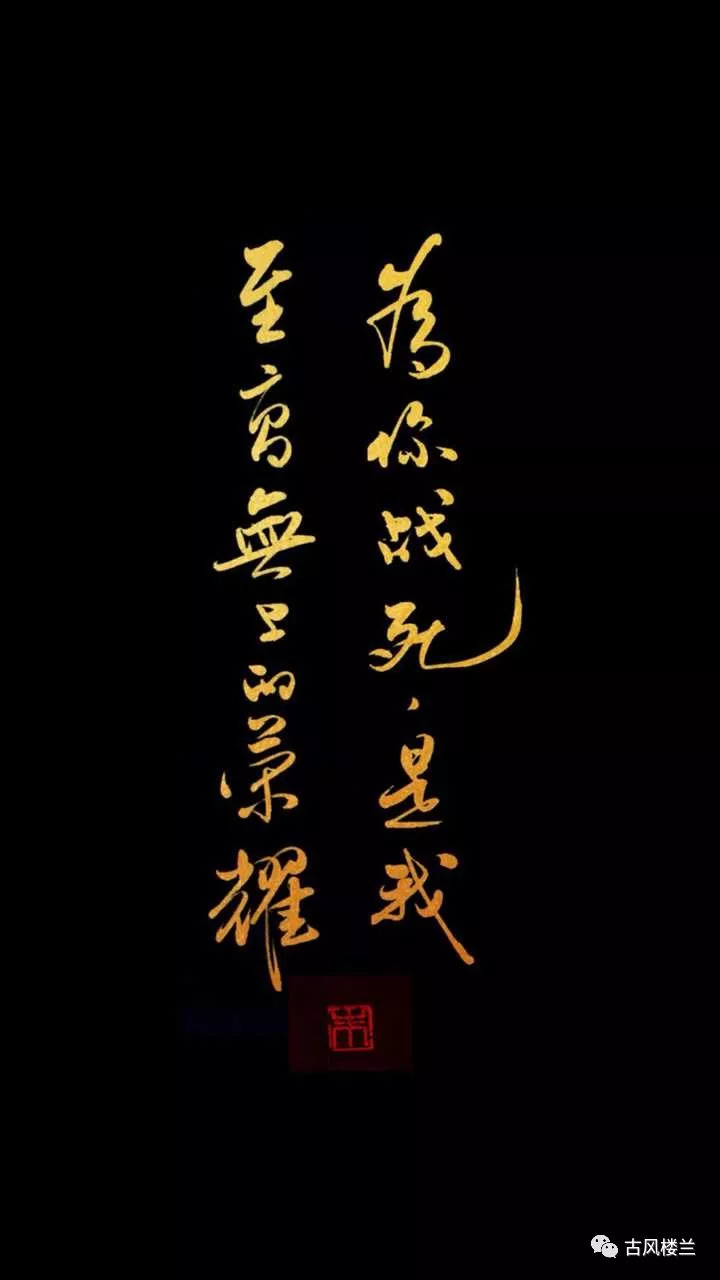 為你战死，是我
至高無上的荣耀
古风楼兰